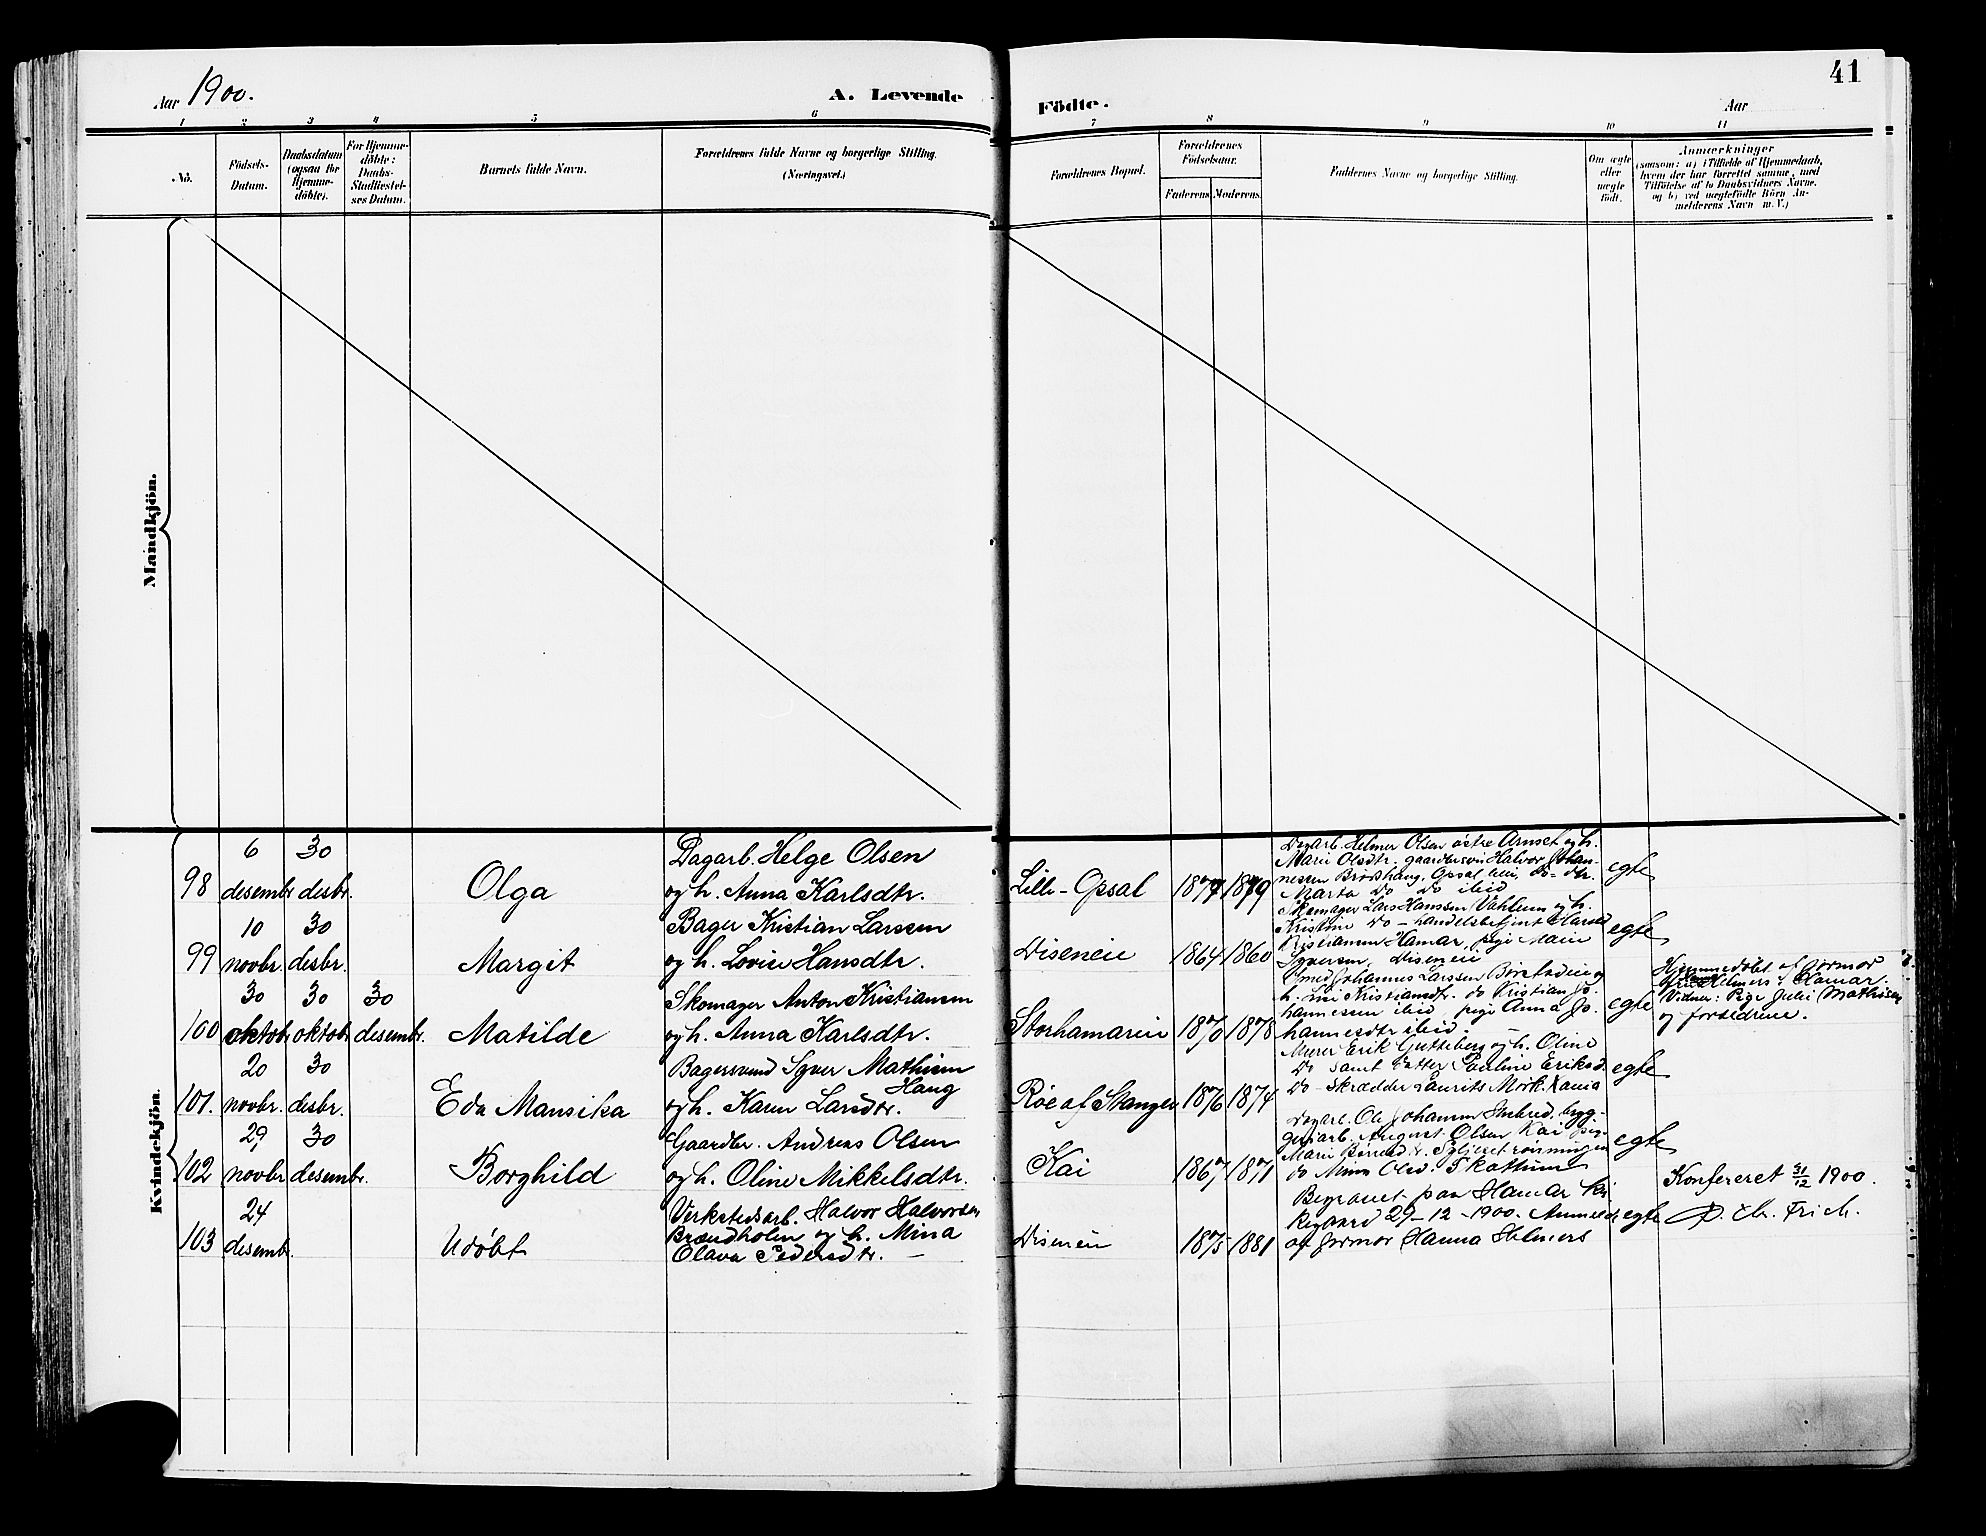 Aar 1900.
A. Levende
Födte.
Aar
41
1 2 3 4 5 6 7 8 9 10 11
No.
Födsels-
Datum.
Daabsdatum
(ogsaa for
Hjemme-
döbte).
For Hjemme-
döbte:
Daabs-
Stadfæstel-
ses Datum.
Barnets fulde Navn.
Forældrenes fulde Navne og borgerlige Stilling.
(Næringsvei.)
Forældrenes Bopæl.
Forældrenes
Födselsaar.
Faderens Moderens
Faddernes Navne og borgerlige Stilling.
Om ægte
eller
uægte
födt.
Anmærkninger
(saasom: a) i Tilfælde af Hjemmedaab,
hvem der har forrettet samme, med
Tilföielse af to Daabsvidners Navne.
og b) ved uægtefödte Börn An-
melderens Navn m. V.)
Mandkjön.
Kvindekjön.
98
6
desembr.
30
desbr.
Olga
Dagarb. Helge Olsen
og h. Anna Karlsdtr.
Lille-Opsal
1877 1879
Dagarb. Helmer Olsen östre Arnset og h.
Marie Olsdtr. gaardbrsön Halvor Johan-
nessen
Marta do do ibid
egte
99
10
novbr.
30
desbr.
Margit
Bager Kristian Larssen
og h. Lovise Hansdtr.
Diseneie
1864 1860
Skomager Lars Hanssen Vahlum og h.
Kristine do - handelsbetjent Harald
Kristiansen Hamar, pige Marie
Syversen, Diseneie
egte
100
30
oktobr
30
oktobr
30
desembr.
Matilde
Skomager Anton Kristiansen
og h. Anna Karlsdtr.
Storhamareie
1870 1878
Smed Johannes Larssen
h. Kristiansdtr. do Kristian Jo-
hannessen ibid, pige Anna Jo-
hannesdtr ibid.
egte
Hjemmedöbt af jormor
Helmers Hamar.
Vidner: Pige Julie Mathisen
og forældrene.
101
20
novbr.
30
desbr.
Eda Mansika
Bagersvend Syver Mathisen
Haug
og h. Karen Larsdtr.
Röe af Stange
1876 1874
Murer Erik Gutteberg og h. Oline
do samt datter Pauline Eriksd.
do - skrædder Laurits Mörk Vania
egte
102
29
novbr
30
desembr.
Borghild
Gaardbr. Andreas Olsen
og h. Oline Mikkelsdtr.
Kai
1867 1871
Dagarb. Ole Johannes bryg-
geriarb. August Olsen Kai pige
Marie
do Mina Olsd. Skattum
egte
Konfereret 31/12 1900.
Ch. Frich.
103
24
desembr.
Udöbt
Verkstedsarb. Halvor Halvorsen
Brændholen og h. Mina
Olava Pedersdtr. —
Diseneie
1875 1881
Begravet paa Hamar kir-
kegaard 29-12-1900. Anmeldt
af jormor Hanna Helmers
egte